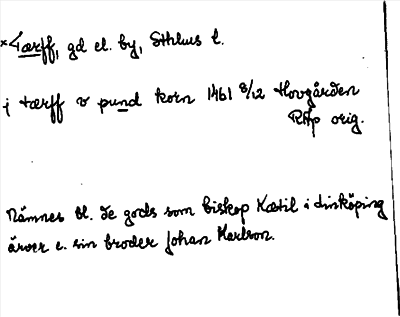 *Tærff, gd el. by, Sthlms l.
j tærff v pund korn 1461 8/12 Hovgården
RAp orig.
Nämnes bl. de gods som biskop Kætil i Linköping
ärver e. sin broder Johan Karlson.